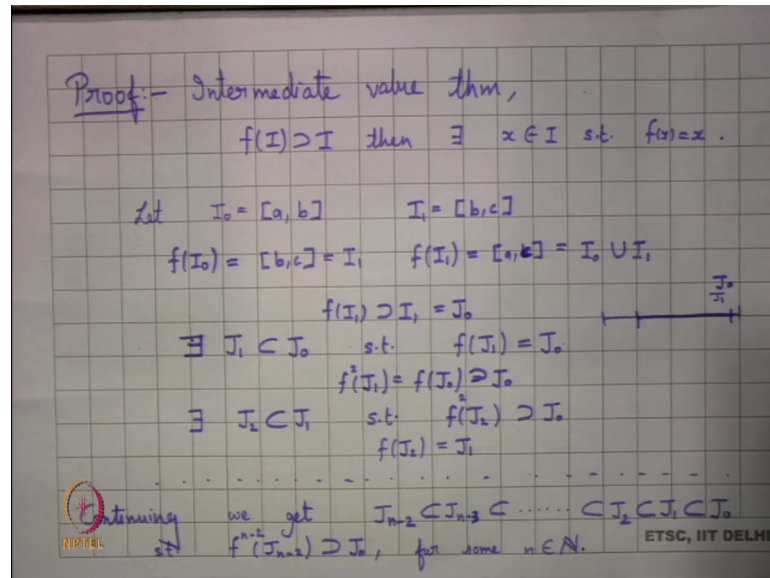 Proof:- Intermediate value thm,
f(I) ⊃ I then ∃ x ∈ I s.t. f(x) = x .
Let I₀ = [a, b] I₁ = [b, c]
f(I₀) = [b, c] = I₁ f(I₁) = [a, c] = I₀ ∪ I₁
f(I₁) ⊃ I₁ = J₀
J₀
J₁
∃ J₁ ⊂ J₀ s.t. f(J₁) = J₀
f²(J₁) = f(J₀) ⊇ J₀
∃ J₂ ⊂ J₁ s.t. f²(J₂) ⊃ J₀
f(J₂) = J₁
. . . . . . . . . . . . . . . . . . . . . . . .
Continuing we get Jₙ₋₂ ⊂ Jₙ₋₃ ⊂ ...... ⊂ J₂ ⊂ J₁ ⊂ J₀
st fⁿ⁻²(Jₙ₋₂) ⊃ J₀, for some n ∈ N.
NPTEL
ETSC, IIT DELHI